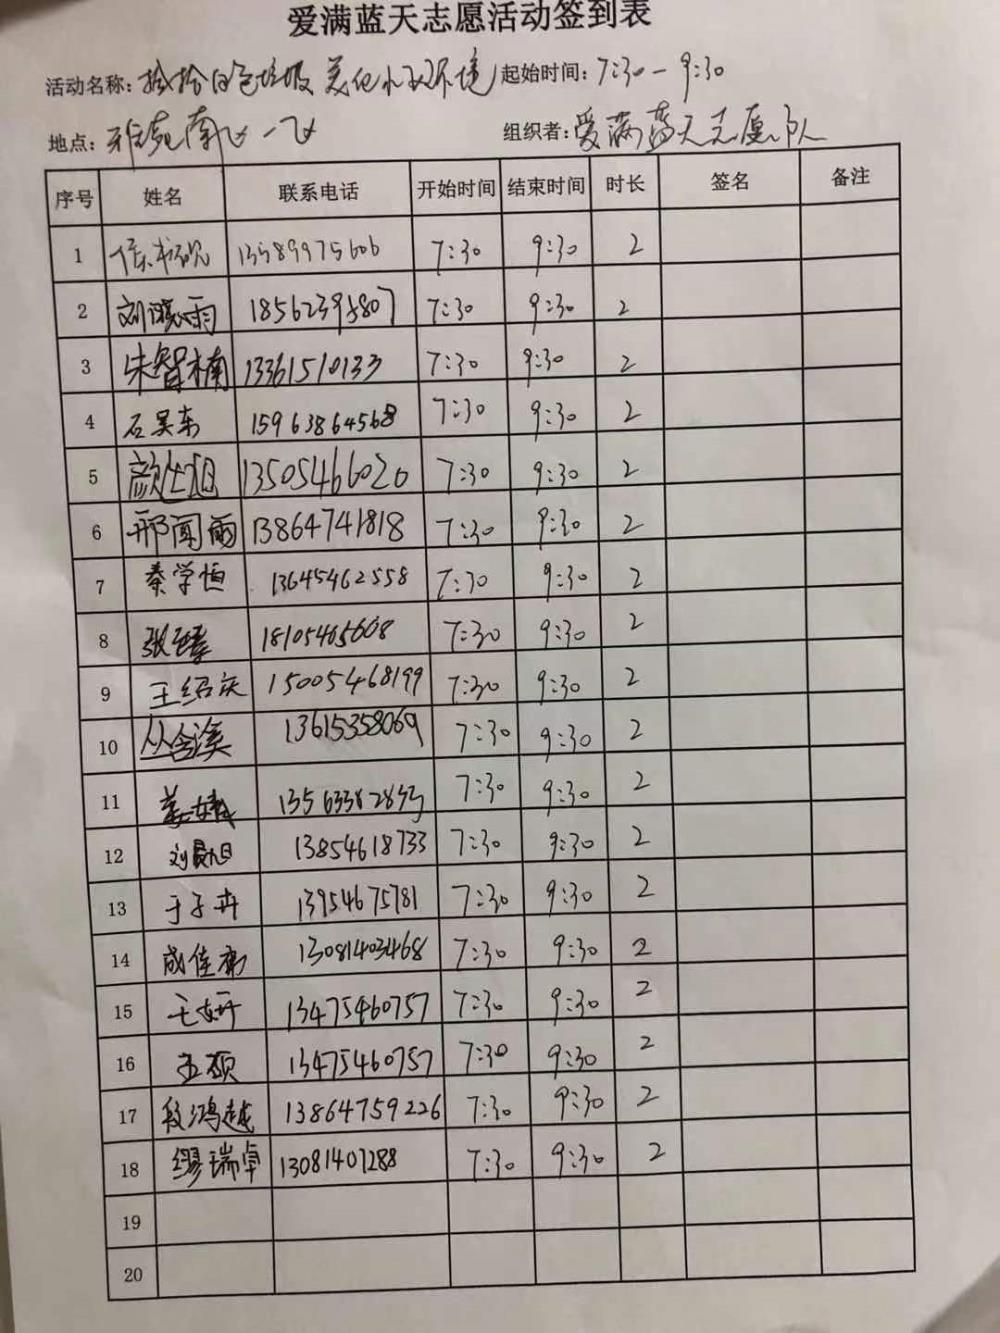 爱满蓝天志愿活动签到表
活动名称: 捡拾白色垃圾 美化小区环境 起始时间: 7:30-9:30
地点: 雅苑南 组织者: 爱满蓝天志愿队
序号 姓名 联系电话 开始时间 结束时间 时长 签名 备注
1 13589975606 7:30 9:30 2
2 刘晓雨 18562395807 7:30 9:30 2
3 朱智楠 13361510133 7:30 9:30 2
4 石昊东 15963864568 7:30 9:30 2
5 13505466020 7:30 9:30 2
6 邢闻雨 13864741818 7:30 9:30 2
7 秦学恒 13645462558 7:30 9:30 2
8 18105465608 7:30 9:30 2
9 王绍庆 15005468199 7:30 9:30 2
10 丛含溪 13615358069 7:30 9:30 2
11 姜婧 7:30 9:30 2
12 13854618733 7:30 9:30 2
13 于子卉 13954675781 7:30 9:30 2
14 13081403468 7:30 9:30 2
15 王妍 13475460757 7:30 9:30 2
16 王硕 13475460757 7:30 9:30 2
17 段鸿越 13864759226 7:30 9:30 2
18 缪瑞卓 13081407288 7:30 9:30 2
19
20